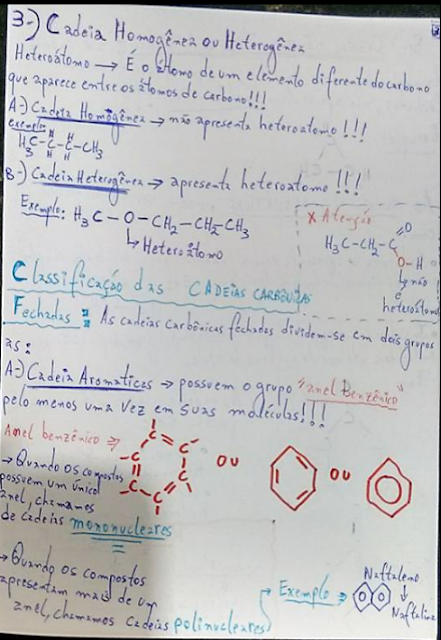 3-) Cadeia Homogênea ou Heterogênea
Heteroátomo → É o átomo de um elemento diferente do carbono
que aparece entre os átomos de carbono!!!
A-) Cadeia Homogênea → não apresenta heteroátomo!!!
exemplo:
H H
H₃C-C-C-CH₃
H H
B-) Cadeia Heterogênea → apresenta heteroátomo!!!
Exemplo: H₃C-O-CH₂-CH₂-CH₃
↳ Heteroátomo
X Atenção
O
H₃C-CH₂-C
O-H
↳ não
é
heteroátomo
Classificação das CADEIAS CARBÔNICAS
Fechadas: As cadeias carbônicas fechadas dividem-se em dois grupos
as:
A-) Cadeia Aromáticas → possuem o grupo "anel Benzênico"
pelo menos uma vez em suas moléculas!!!
Anel benzênico ⇒
C
C C
C C
C
ou ou
→ Quando os compostos
possuem um único
anel, chamamos
de cadeias mononucleares
→ Quando os compostos
apresentam mais de um
anel, chamamos cadeias polinucleares
Exemplo ⇒
Naftaleno
↓
Naftalina